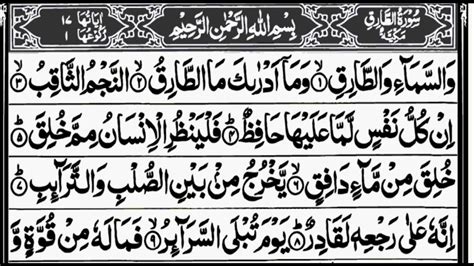 سُوْرَةُ الطَّارِقِ مَكِّيَّةٌ بِسْمِ اللّٰهِ الرَّحْمٰنِ الرَّحِيْمِ اٰيَاتُهَا ١٧ رُكُوْعُهَا ١
وَالسَّمَآءِ وَالطَّارِقِ ۙ﴿۱﴾ وَمَاۤ اَدْرٰىكَ مَا الطَّارِقُ ۙ﴿۲﴾ النَّجْمُ الثَّاقِبُ ۙ﴿۳﴾
اِنْ كُلُّ نَفْسٍ لَّمَّا عَلَيْهَا حَافِظٌ ؕ﴿۴﴾ فَلْيَنْظُرِ الْاِنْسَانُ مِمَّ خُلِقَ ؕ﴿۵﴾
خُلِقَ مِنْ مَّآءٍ دَافِقٍ ۙ﴿۶﴾ يَّخْرُجُ مِنْۢ بَيْنِ الصُّلْبِ وَالتَّرَآئِبِ ؕ﴿۷﴾
اِنَّهٗ عَلٰى رَجْعِهٖ لَقَادِرٌ ؕ﴿۸﴾ يَوْمَ تُبْلَى السَّرَآئِرُ ۙ﴿۹﴾ فَمَا لَهٗ مِنْ قُوَّةٍ وَّ